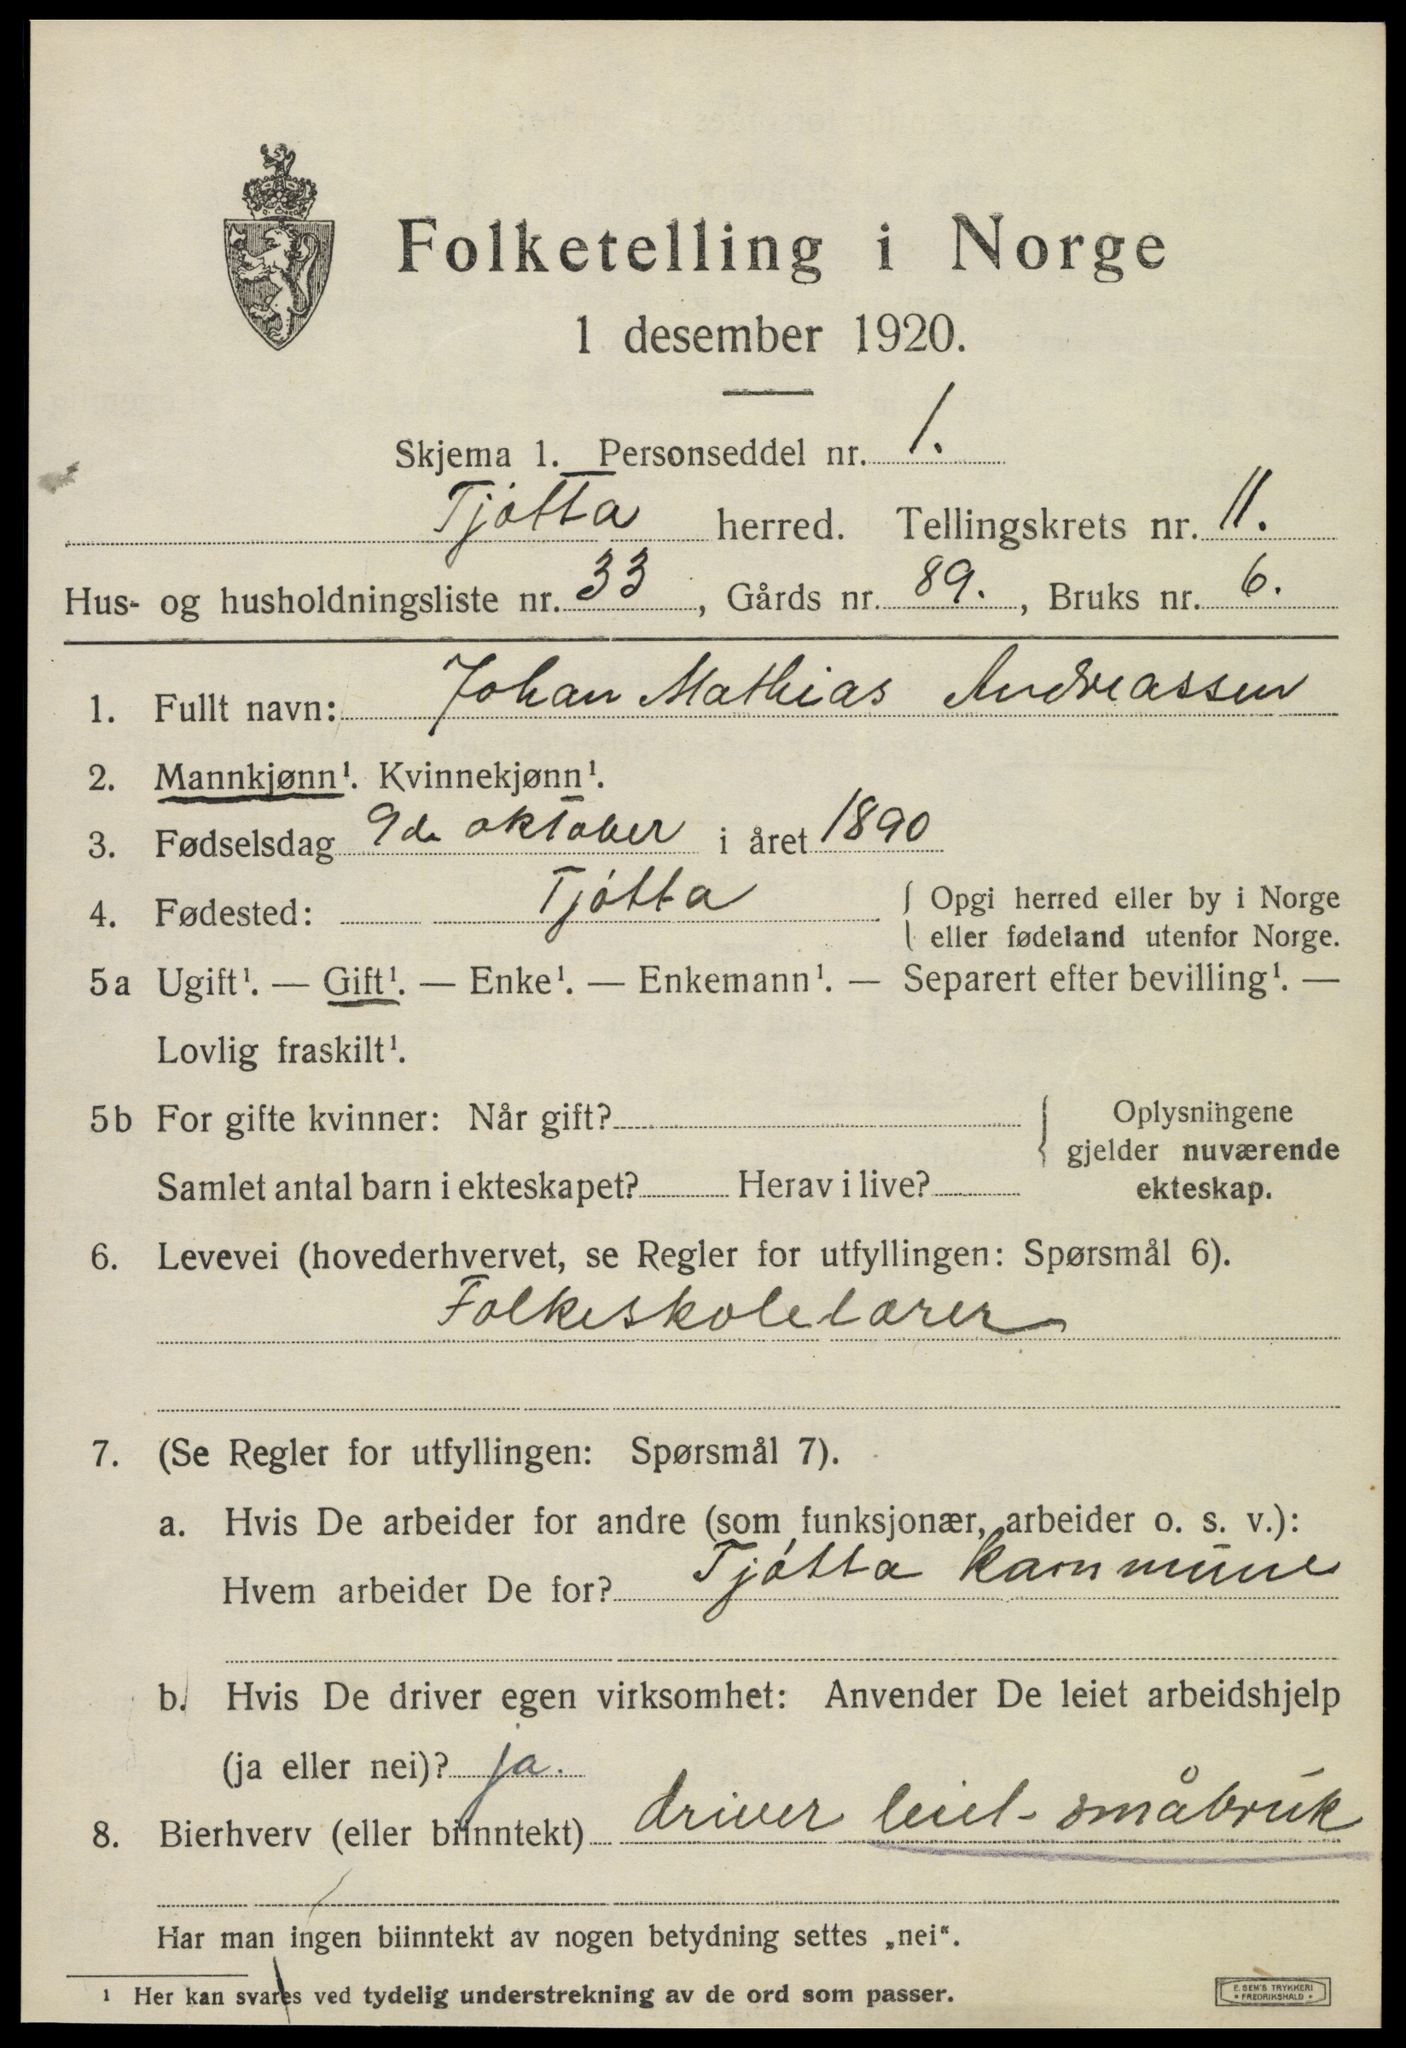 Folketelling i Norge
1 desember 1920.
Skjema 1. Personseddel nr. 1.
Tjøtta herred. Tellingskrets nr. 11.
Hus- og husholdningsliste nr. 33, Gårds nr. 89., Bruks nr. 6.
1. Fullt navn: Johan Mathias Andreassen
2. Mannkjønn¹. Kvinnekjønn¹.
3. Fødselsdag 9de oktober i året 1890
4. Fødested: Tjøtta { Opgi herred eller by i Norge
eller fødeland utenfor Norge.
5a Ugift¹. — Gift¹. — Enke¹. — Enkemann¹. — Separert efter bevilling¹. —
Lovlig fraskilt¹.
5b For gifte kvinner: Når gift? { Oplysningene
gjelder nuværende
Samlet antal barn i ekteskapet? Herav i live? ekteskap.
6. Levevei (hovederhvervet, se Regler for utfyllingen: Spørsmål 6).
Folkeskolelærer
7. (Se Regler for utfyllingen: Spørsmål 7).
a. Hvis De arbeider for andre (som funksjonær, arbeider o. s. v.):
Hvem arbeider De for? Tjøtta kommune
b. Hvis De driver egen virksomhet: Anvender De leiet arbeidshjelp
(ja eller nei)? ja.
8. Bierhverv (eller biinntekt) driver leiel-småbruk
Har man ingen biinntekt av nogen betydning settes „nei“.
¹ Her kan svares ved tydelig understrekning av de ord som passer.
E. SEM'S TRYKKERI
* FREDRIKSHALD *